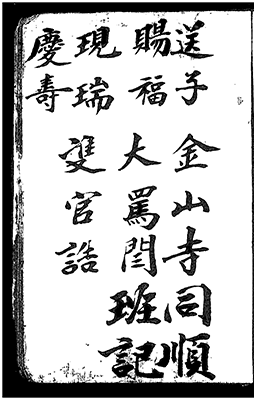 送子
賜福
現瑞
慶壽
金山寺
大罵閆
雙官誥
同順
班記